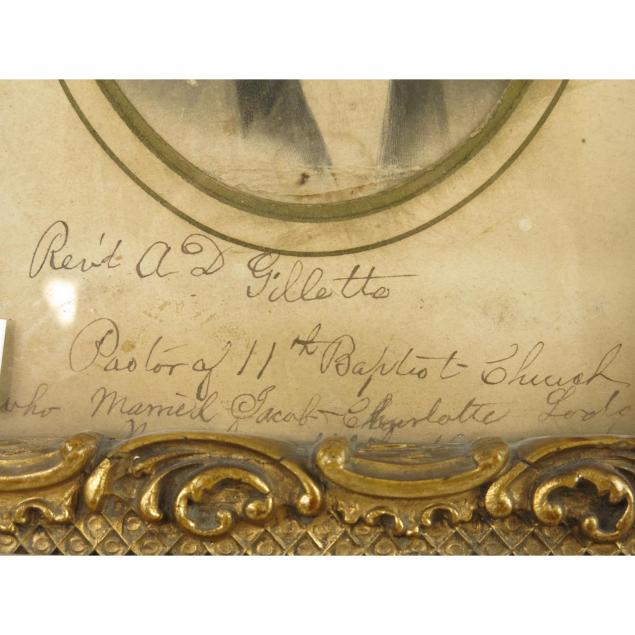 Rev'd A D Gillette
Pastor of 11th Baptist Church
who Married Jacob - Charlotte